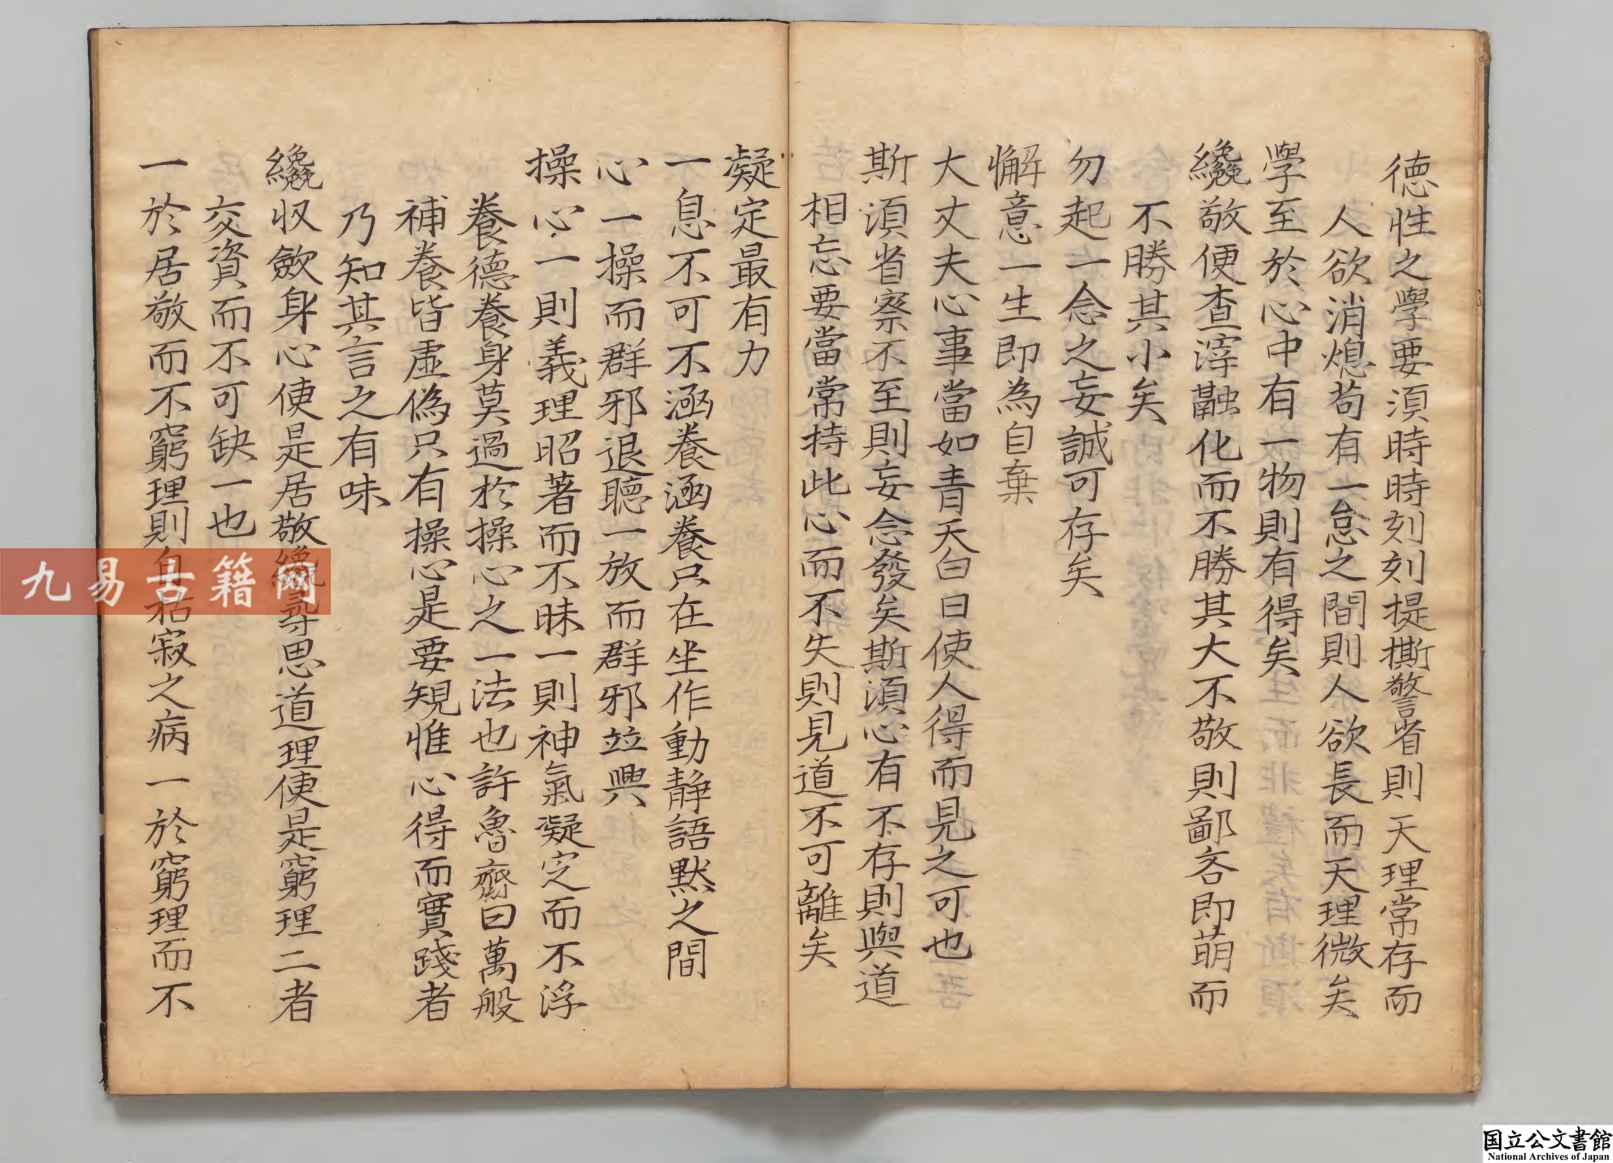 德性之學要須時時刻刻提撕警省則天理常存而
人欲消熄苟有一怠之間則人欲長而天理微矣
學至於心中有一物則有得矣
纔敬便查滓融化而不勝其大不敬則鄙吝即萌而
不勝其小矣
勿起一念之妄誠可存矣
懈意一生即為自棄
大丈夫心事當如青天白日使人得而見之可也
斯須省察不至則妄念發矣斯須心有不存則與道
相忘要當常持此心而不失則見道不可離矣
凝定最有力
一息不可不涵養涵養只在坐作動靜語默之間
心一操而群邪退聽一放而群邪並興
操心一則義理昭著而不昧一則神氣凝定而不浮
養德養身莫過於操心之一法也許魯齋曰萬般
補養皆虛偽只有操心是要規惟心得而實踐者
乃知其言之有味
纔収斂身心便是居敬纔尋思道理便是窮理二者
交資而不可缺一也
一於居敬而不窮理則自枯寂之病一於窮理而不
九易古籍网
国立公文書館
National Archives of Japan